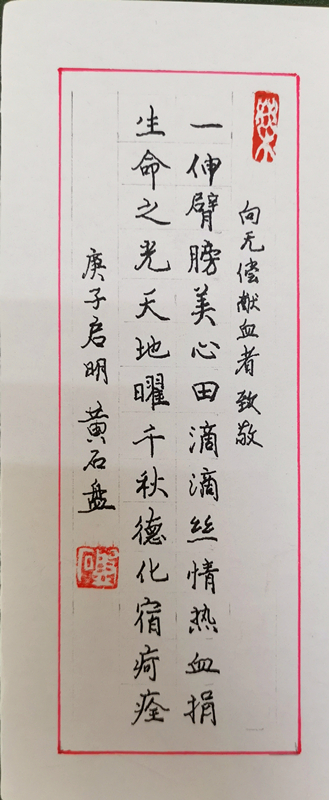 向无偿献血者致敬
一伸臂膀美心田滴滴丝情热血捐
生命之光天地曜千秋德化宿疴痊
庚子启明 黄石盘